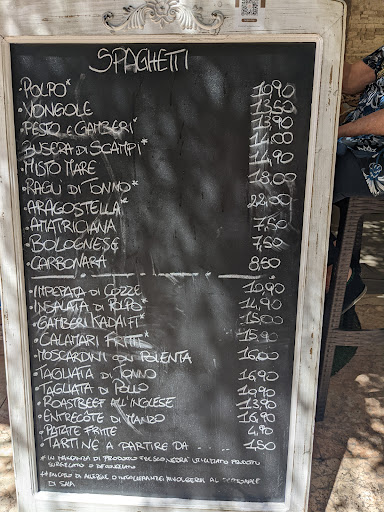 SPAGHETTI
· POLPO* 10,90
· VONGOLE 13,50
· PESTO E GAMBERI* 13,90
· BUSERA DI SCAMPI* 14,00
· MISTO MARE 14,90
· RAGÙ DI TONNO* 18,00
· ARAGOSTELLA* 22,00
· AMATRICIANA 7,50
· BOLOGNESE 7,50
· CARBONARA 8,50
· IMPEPATA DI COZZE 10,90
· INSALATA DI POLPO* 14,90
· GAMBERI KADAIFI* 15,00
· CALAMARI FRITTI* 15,90
· MOSCARDINI CON POLENTA 16,00
· TAGLIATA DI TONNO 16,90
· TAGLIATA DI POLLO 10,90
· ROASTBEEF ALL'INGLESE 13,90
· ENTRECÔTE DI MANZO 16,90
· PATATE FRITTE 4,90
· TARTINE A PARTIRE DA ..... 1,50
* IN MANCANZA DI PRODOTTO FRESCO, VERRÀ UTILIZZATO PRODOTTO
SURGELATO O CONGELATO
** IN CASO DI ALLERGIE O INTOLLERANZE RIVOLGERSI AL PERSONALE
DI SALA